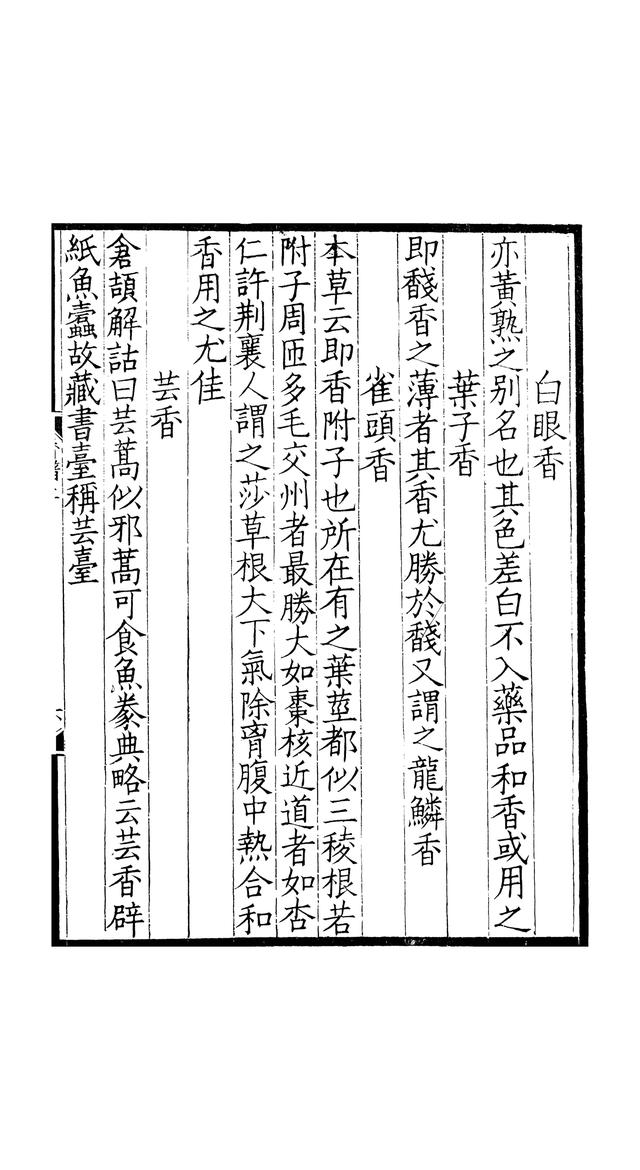 白眼香
亦黃熟之别名也其色差白不入藥品和香或用之
葉子香
即馢香之薄者其香尤勝於馢又謂之龍鱗香
雀頭香
本草云即香附子也所在有之葉莖都似三稜根若
附子周匝多毛交州者最勝大如棗核近道者如杏
仁許荆襄人謂之莎草根大下氣除胷腹中熱合和
香用之尤佳
芸香
倉頡解詁曰芸蒿似邪蒿可食魚豢典略云芸香辟
紙魚蠹故藏書臺稱芸臺